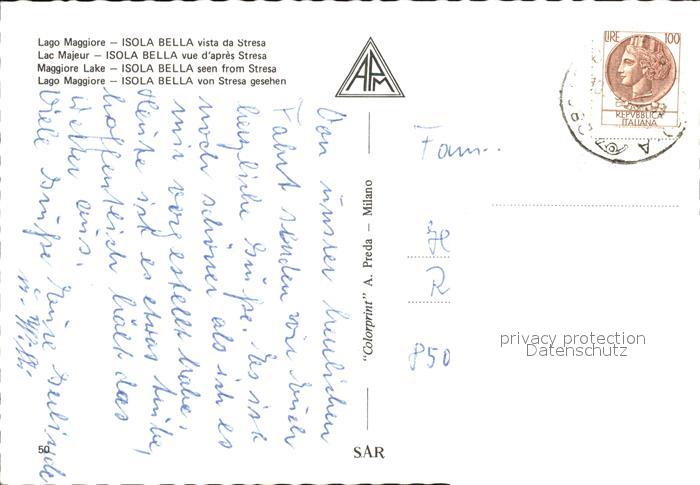 Lago Maggiore – ISOLA BELLA vista da Stresa
Lac Majeur – ISOLA BELLA vue d'après Stresa
Maggiore Lake – ISOLA BELLA seen from Stresa
Lago Maggiore – ISOLA BELLA von Stresa gesehen
APM
LIRE 100
REPVBBLICA
ITALIANA
Von unsrer herrlichen
Fahrt senden wir Euch
herzliche Grüße. Es ist
noch schöner als ich es
mir vorgestellt habe.
Heute ist es etwas trübe,
hoffentlich hält das
Wetter aus.
Viele Grüße Eure
"Colorprint" A. Preda – Milano
Fam...
H
R
850
privacy protection
Datenschutz
50
SAR